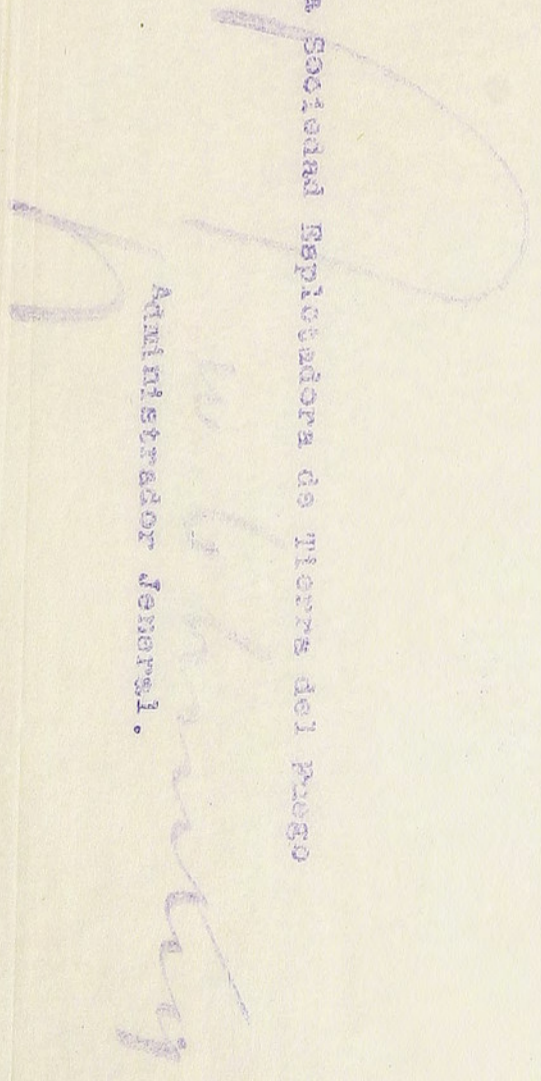 Sociedad Esplotadora de Tierra del Fuego
Administrador Jeneral.